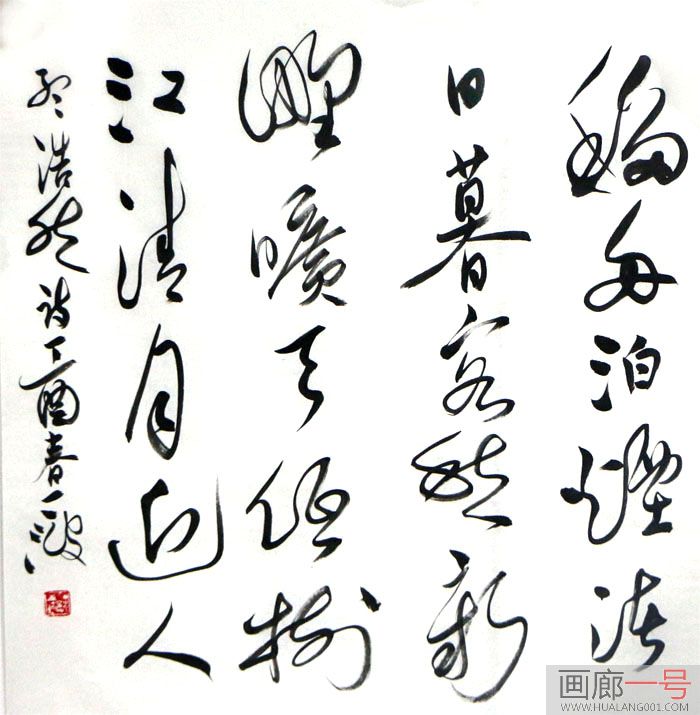 移舟泊煙渚
日暮客愁新
野曠天低樹
江清月近人
孟浩然诗丁酉春一
画廊一号
WWW.HUALANG001.COM